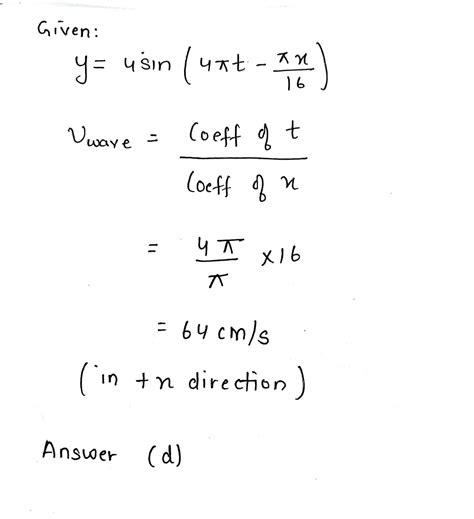 Given:
y = 4 sin (4πt - πx/16)
Vwave = Coeff of t / Coeff of x
= 4π/π ×16
= 64 cm/s
(in +x direction)
Answer (d)